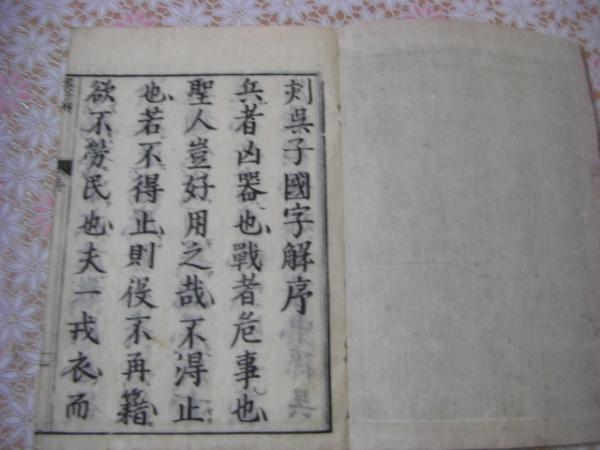 刻吳子國字解序
兵者凶器也戰者危事也
聖人豈好用之哉不得止
也若不得止則役不再籍
欲不勞民也夫一戎衣而